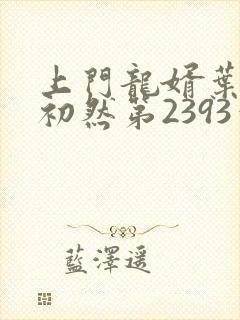 上門龍婿葉
初然第2393
藍澤遥